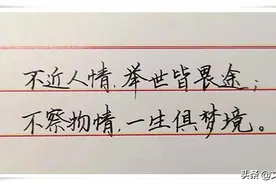 不近人情，举世皆畏途；
不察物情，一生俱梦境。